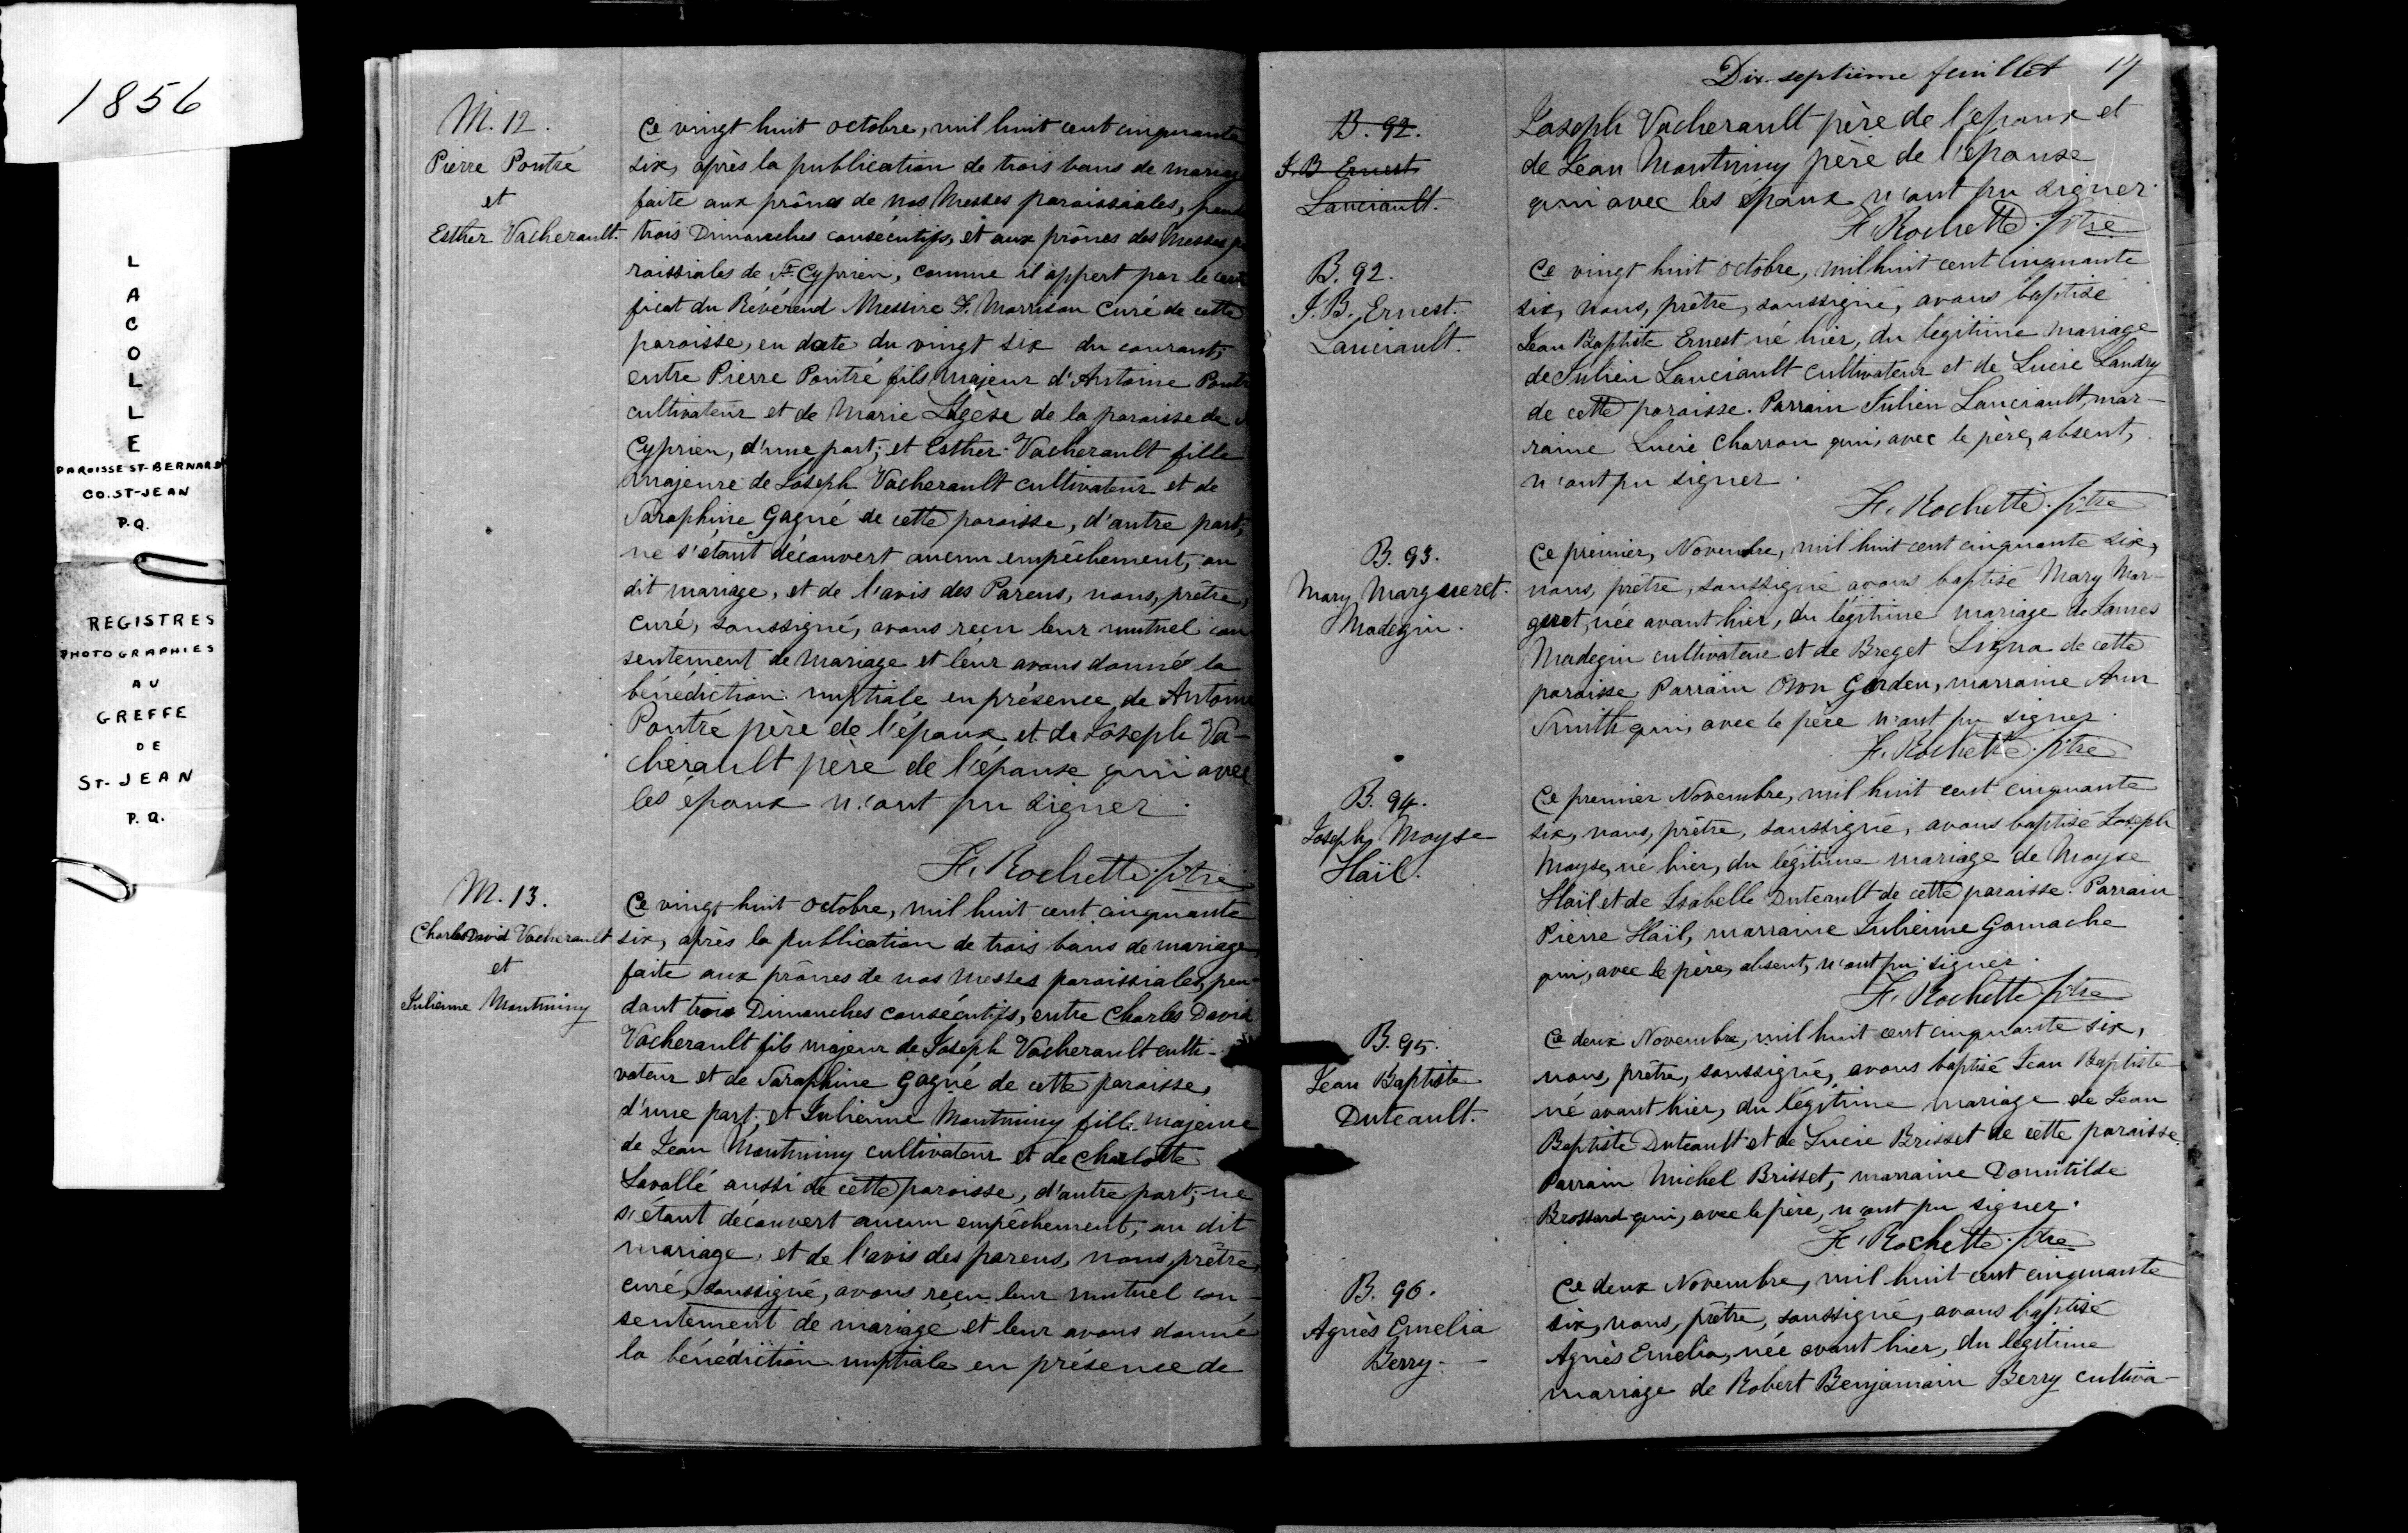 1856
LACOLLE
PAROISSE ST-BERNARD
CO. ST-JEAN
P.Q.
REGISTRES
PHOTOGRAPHIES
AU
GREFFE
DE
ST-JEAN
P.Q.
M. 12.
Pierre Poutré
et
Esther Vacherault.
Ce vingt huit octobre, mil huit cent cinquante
six, après la publication de trois bans de mariage
faite aux prônes de nos Messes paroissiales,
trois Dimanches consécutifs, et aux prônes des Messes pa
roissiales de St. Cyprien, comme il appert par le certi
ficat du Révérend Messire F. Morrison Curé de cette
paroisse, en date du vingt six du courant;
entre Pierre Poutré fils majeur d'Antoine Poutré
cultivateur et de Marie Ligèse de la paroisse de
Cyprien, d'une part; et Esther Vacherault fille
majeure de Joseph Vacherault cultivateur et de
Saraphine Gagné de cette paroisse, d'autre part;
ne s'étant découvert aucun empêchement, au
dit mariage, et de l'avis des Parens, nous, prêtre,
curé, soussigné, avons reçu leur mutuel con
sentement de mariage et leur avons donné la
bénédiction nuptiale en présence, de Antoine
Poutré père de l'époux et de Joseph Va-
cherault père de l'épouse qui avec
les époux n'ont pu signer.
F. Rochette. ptre
M. 13.
Charles David Vacherault
et
Julienne Montminy
Ce vingt huit octobre, mil huit cent cinquante
six, après la publication de trois bans de mariage
faite aux prônes de nos Messes paroissiales, pen-
dant trois Dimanches consécutifs, entre Charles David
Vacherault fils majeur de Joseph Vacherault culti-
vateur et de Saraphine Gagné de cette paroisse,
d'une part; et Julienne Montminy fille majeure
de Jean Montminy cultivateur et de Charlotte
Lavallé aussi de cette paroisse, d'autre part; ne
s'étant découvert aucun empêchement, au dit
mariage, et de l'avis des parens, nous, prêtre,
curé, soussigné, avons reçu leur mutuel con-
sentement de mariage et leur avons donné
la bénédiction nuptiale en présence de
Dix-septième feuillet 17
Joseph Vacherault père de l'époux et
de Jean Montminy père de l'épouse
qui avec les époux n'ont pu signer.
F. Rochette. ptre
B. 92.
J. B Ernest
Lanciault.
B. 92.
J. B. Ernest.
Lanciault.
Ce vingt huit octobre, mil huit cent cinquante
six, nous, prêtre, soussigné, avons baptisé
Jean Baptiste Ernest né hier, du légitime mariage
de Julien Lanciault cultivateur et de Lucie Landry
de cette paroisse. Parrain Julien Lanciault, mar-
raine Lucie Charron qui, avec le père, absent,
n'ont pu signer.
F. Rochette. ptre
B. 93.
Mary Margueret.
Madegin.
Ce premier, Novembre, mil huit cent cinquante six,
nous, prêtre, soussigné avons baptisé Mary Mar-
gueret, née avant hier, du légitime mariage de James
Madegin cultivateur et de Breget Ligna de cette
paroisse. Parrain Gorden, marraine Ann
Smith qui, avec le père n'ont pu signer.
F. Rochette. ptre
B. 94.
Joseph Moyse
Haïl.
Ce premier Novembre, mil huit cent cinquante
six, nous, prêtre, soussigné, avons baptisé Joseph
Moyse, né hier, du légitime mariage de Moyse
Haïl et de Isabelle Duteault de cette paroisse. Parrain
Pierre Haïl, marraine Julienne Gamache
qui, avec le père, absent, n'ont pu signer.
F. Rochette ptre
B. 95.
Jean Baptiste
Duteault.
Ce deux Novembre, mil huit cent cinquante six,
nous, prêtre, soussigné, avons baptisé Jean Baptiste
né avant hier, du légitime mariage de Jean
Baptiste Duteault et de Lucie Brisset de cette paroisse.
Parrain Michel Brisset, marraine Domitilde
Brossard qui, avec le père, n'ont pu signer.
F. Rochette. ptre
B. 96.
Agnès Emelia
Berry.
Ce deux Novembre, mil huit cent cinquante
six, nous, prêtre, soussigné, avons baptisé
Agnès Emelia, née avant hier, du légitime
mariage de Robert Benjamain Berry cultiva-